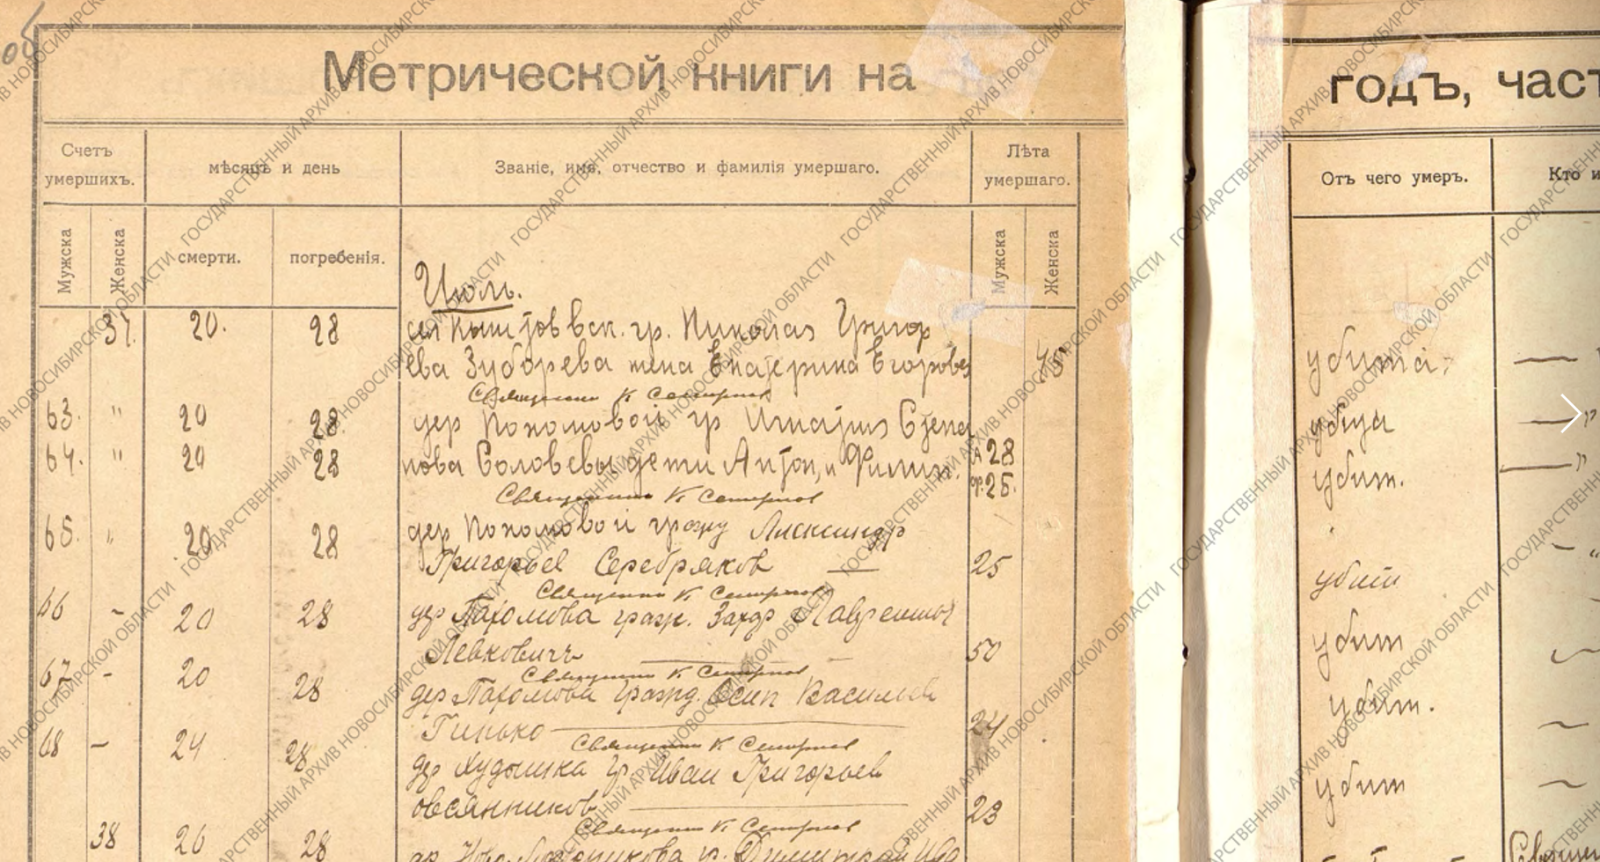 Метрической книги на
годъ, част
Счетъ умершихъ.
мѣсяцъ и день
Званіе, имя, отчество и фамилія умершаго.
Лѣта умершаго.
Отъ чего умеръ.
Кто и
Мужска
Женска
смерти.
погребенія.
Мужска
Женска
Июль.
37. 20. 28 гр. Николая Григор
ева Зубарева жена Екатерина Егоровa 45 убита
Священник К Семирнов
63. " 20 28 дер Пахомовой гр Игнатия Степа
64. " 20 28 нова Соловьевы дети Антон, и Филип. А 28 ф. 25. убит.
Священник К Семирнов
65. " 20 28 дер Пахомовой гражд Александр
Григорьев Серебряков — 25 убит
Священник К Семирнов
66 - 20 28 дер Пахомова граж. Захар Лаврентьев
Левкович 50 убит
Священник К Семирнов
67 - 20 28 дер Пахомова гражд. Осип Васильев
Гинько 24 убит.
Священник К Семирнов
68 - 24 28 дер гр Иван Григорьев
Овсянников 23 убит
Священник К Семирнов
38 26 28
ГОСУДАРСТВЕННЫЙ АРХИВ НОВОСИБИРСКОЙ ОБЛАСТИ